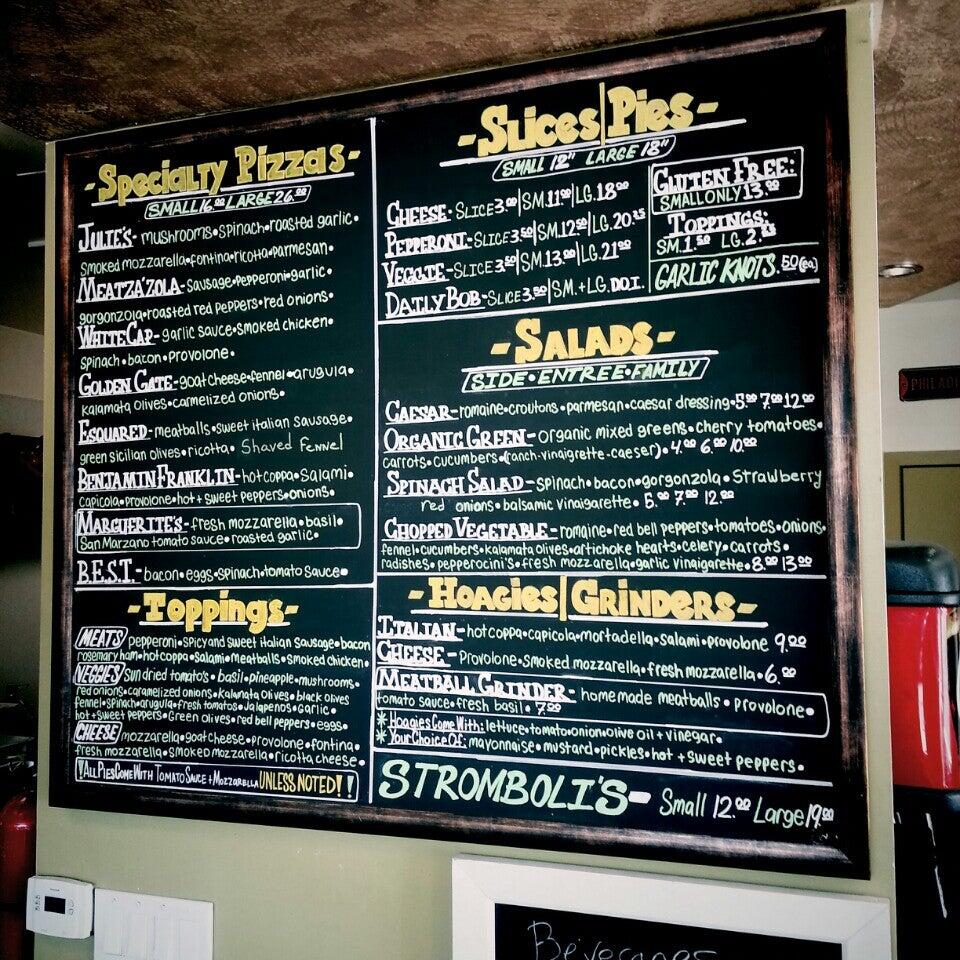 -Specialty Pizzas-
SMALL 16.00 LARGE 26.00
JULIE'S- mushrooms•spinach•roasted garlic•
Smoked mozzarella•fontina•ricotta•parmesan•
MEATZA'ZOLA-sausage•pepperoni•garlic•
gorgonzola•roasted red peppers•red onions•
WHITE CAP-garlic sauce•smoked chicken•
spinach•bacon•provolone•
GOLDEN GATE-goat cheese•fennel•arugula•
kalamata olives•carmelized onions•
ESQUARED-meatballs•sweet italian sausage•
green sicilian olives•ricotta• Shaved Fennel
BENJAMIN FRANKLIN-hot coppa•Salami•
capicola•provolone•hot+sweet peppers•onions•
MARGUERITE'S-fresh mozzarella•basil•
San Marzano tomato sauce•roasted garlic•
B.E.S.T.-bacon•eggs•spinach•tomato sauce•
-Toppings-
MEATS pepperoni•spicy and sweet italian sausage•bacon
rosemary ham•hot coppa•salami•meatballs•smoked chicken•
VEGGIES sun dried tomato's•basil•pineapple•mushrooms•
red onions•caramelized onions•Kalamata Olives•black olives
fennel•spinach•arugula•fresh tomatos•Jalapenos•Garlic•
hot+sweet peppers•Green olives•red bell peppers•eggs•
CHEESE mozzarella•goat cheese•provolone•fontina•
fresh mozzarella•smoked mozzarella•ricotta cheese•
!ALL PIES COME WITH TOMATO SAUCE+MOZZARELLA UNLESS NOTED!!
-Slices|Pies-
SMALL 12" LARGE 18"
CHEESE-SLICE 3.00|SM.11.00|LG.18.00
PEPPERONI-SLICE 3.50|SM.12.50|LG.20.25
VEGGIE-SLICE 3.50|SM.13.00|LG.21.00
DAILY BOB-SLICE 3.50|SM.+LG. D.O.I.
GLUTEN FREE:
SMALL ONLY 13.00
TOPPINGS:
SM.1.50 LG.2.25
GARLIC KNOTS .50(ea)
-SALADS-
SIDE•ENTREE•FAMILY
CAESAR-romaine•croutons•parmesan•caesar dressing•5.00 7.00 12.00
ORGANIC GREEN-organic mixed greens•cherry tomatoes•
carrots•cucumbers•(ranch-vinaigrette-caeser)•4.00 6.00 10.00
SPINACH SALAD-spinach•bacon•gorgonzola•Strawberry
red onions•balsamic vinaigarette• 5.00 7.00 12.00
CHOPPED VEGETABLE-romaine•red bell peppers•tomatoes•onions•
fennel•cucumbers•kalamata olives•artichoke hearts•celery•carrots•
radishes•pepperocini's•fresh mozzarella•garlic vinaigarette•8.00 13.00
-HOAGIES|GRINDERS-
ITALIAN-hot coppa•capicola•mortadella•salami•provolone 9.00
CHEESE-Provolone•smoked mozzarella•fresh mozzarella•6.00
MEATBALL GRINDER- homemade meatballs•provolone•
tomato sauce•fresh basil•7.00
*Hoagies Come With: lettuce•tomato•onion•olive oil+vinegar•
*Your Choice Of: mayonnaise•mustard•pickles•hot+sweet peppers•
STROMBOLI'S- Small 12.00 Large 19.00
Beverages